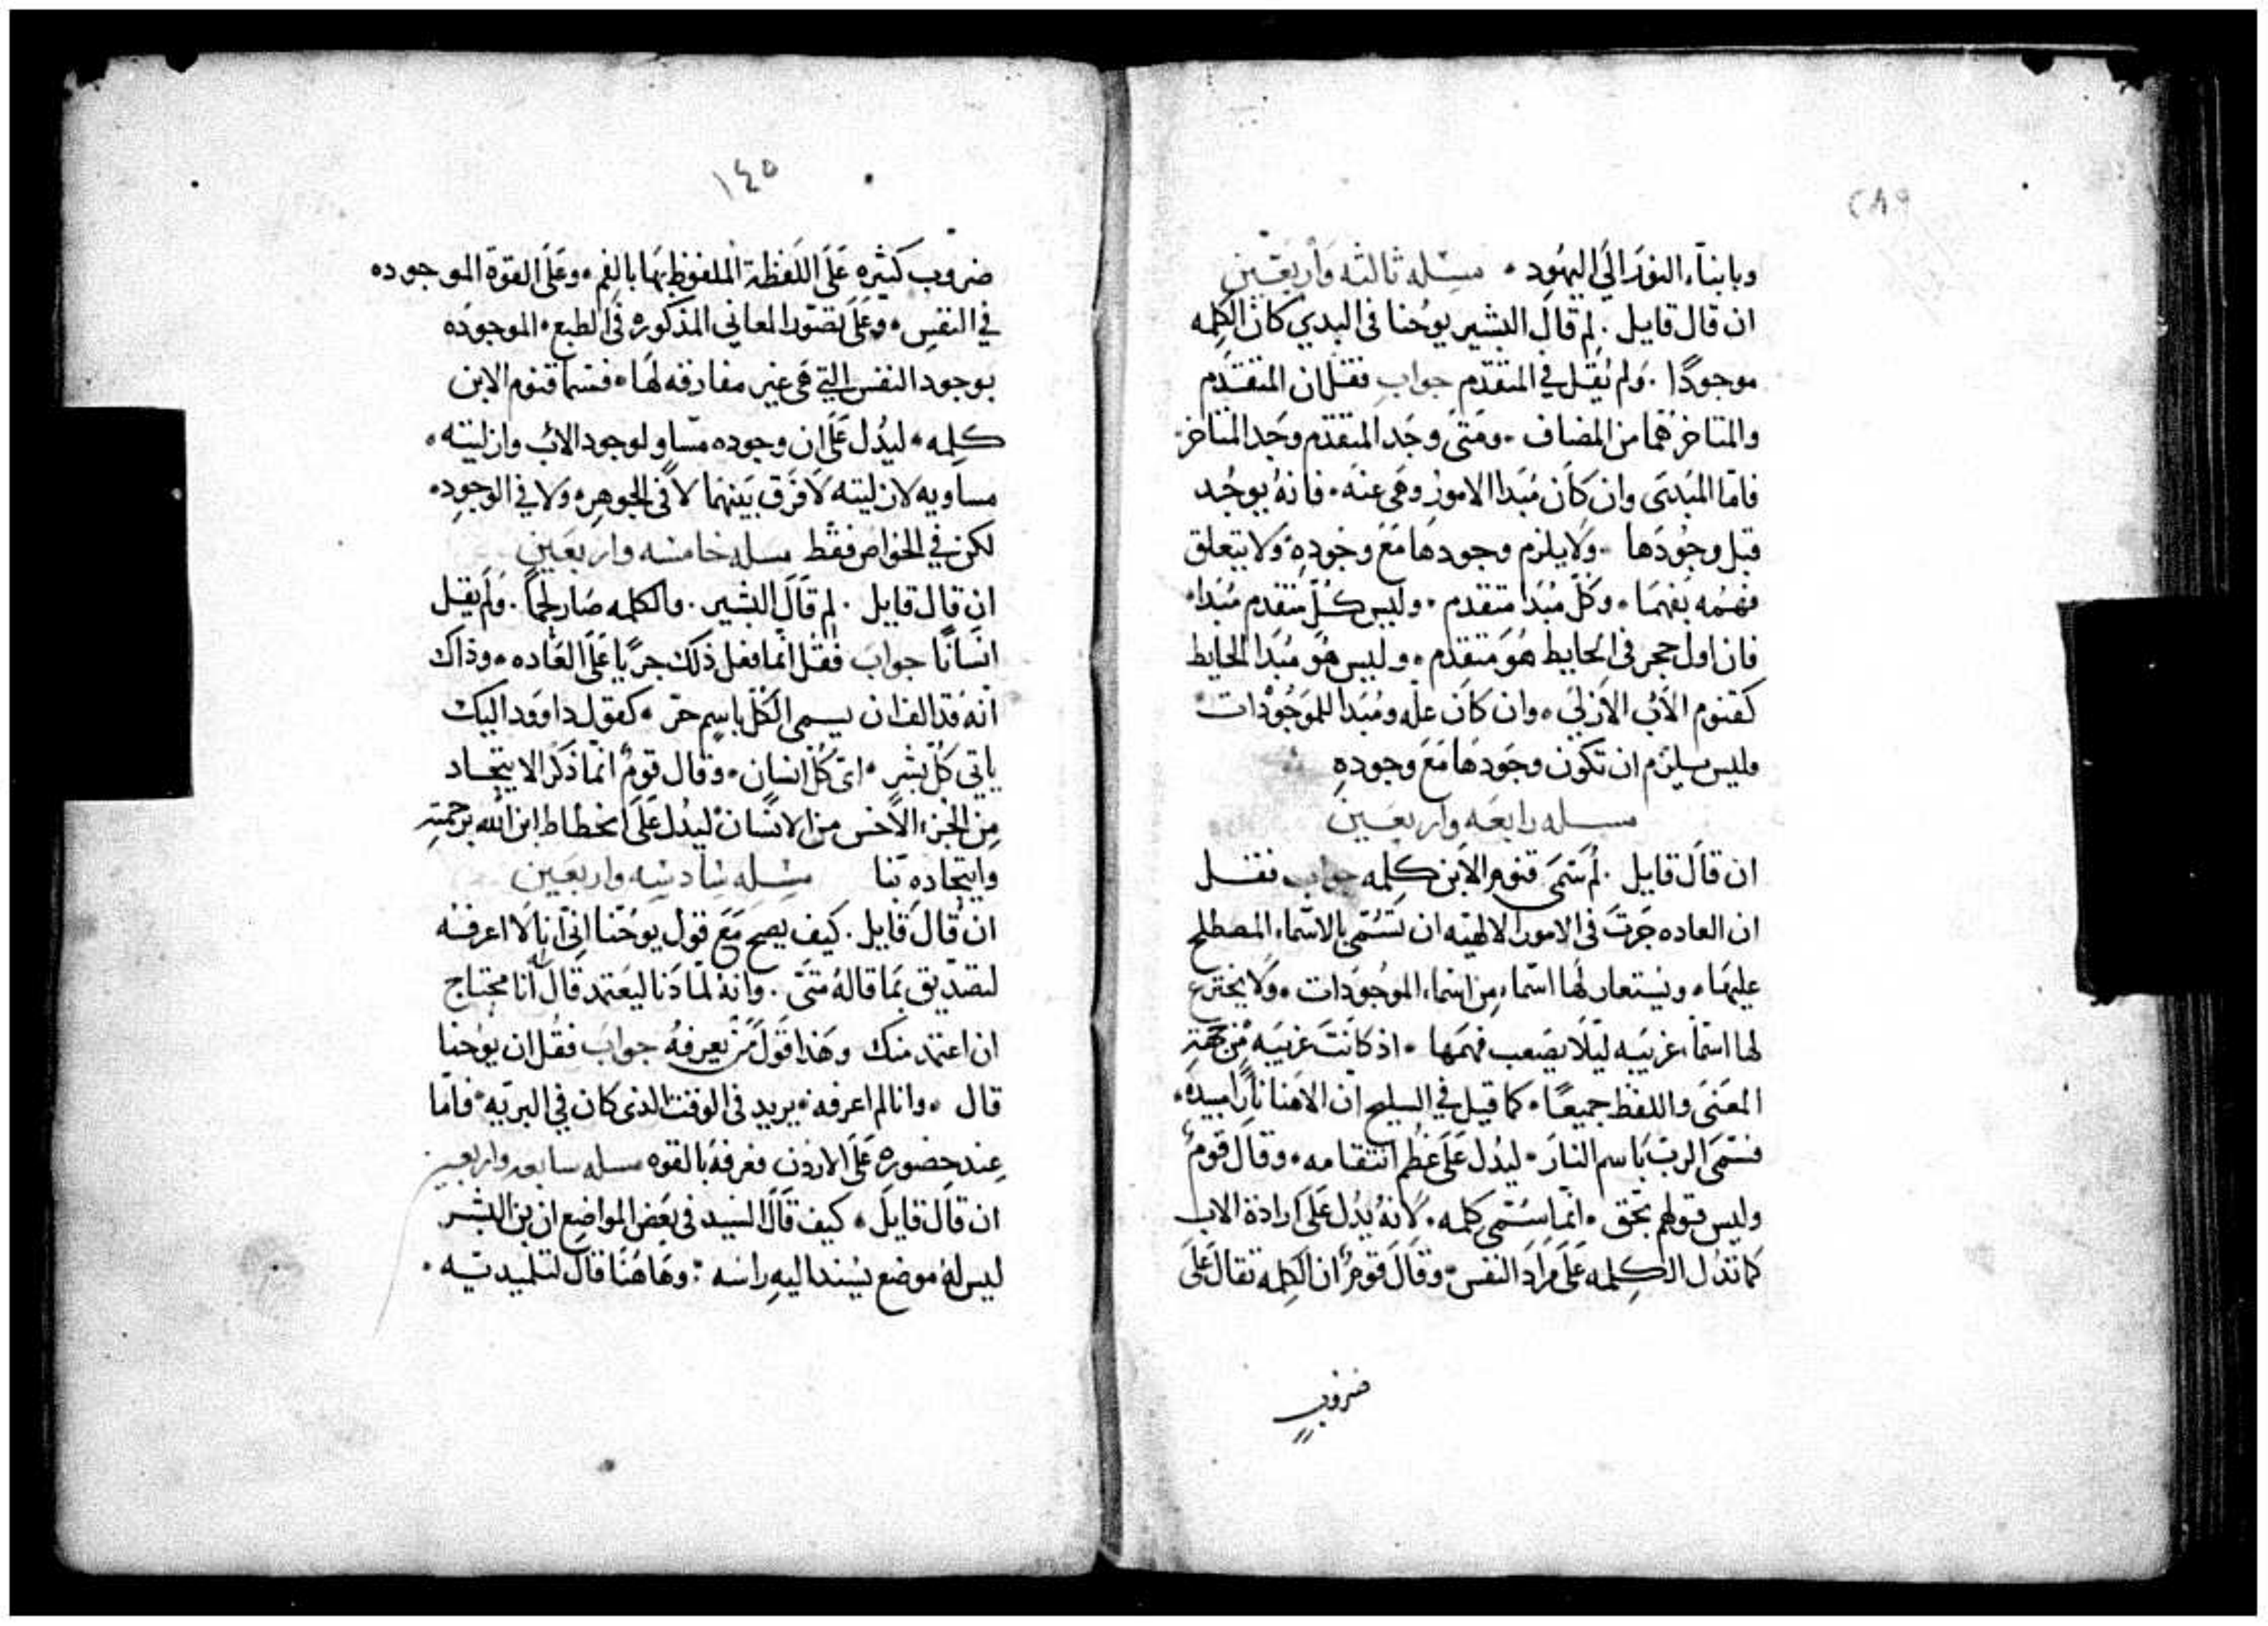 ٢٨٩
وبابناء النور الي اليهود ۰ مسله ثالثه واربعين
ان قال قايل . لم قال البشير يوحنا في البدي كان الكلمه
موجودًا . ولم يقل في المتقدم جواب فقل ان المتقدم
والمتاخر هما من المضاف ۰ ومتى وجد المتقدم وجد المتاخر۰
فاما المبدى وان كان مبدا الامور وهى عنه ۰ فانه يوجد
قبل وجودها ۰ ولا يلزم وجودها مع وجوده ولا يتعلق
فهمه بفهمها ۰ وكل مبدا متقدم ۰ وليس كل متقدم مبدا۰
فان اول حجر في الحايط هو متقدم ۰ وليس هو مبدا الحايط
كقنوم الاب الازلي ۰ وان كان عله ومبدا للموجودات ۰
فليس يلزم ان تكون وجودها مع وجوده
مسله رابعه واربعين
ان قال قايل . لم سمى قنوم الابن كلمه جواب فقل
ان العاده جرت في الامور الالهيه ان تسمى بالاسماء المصطلح
عليها ۰ ويستعار لها اسماء من اسماء الموجودات ۰ ولا يخترع
لها اسماء غريبه ليلا يصعب فهمها ۰ اذ كانت غريبه من جهة
المعنى واللفظ جميعًا ۰ كما قيل في السليح ان الاهنا نارًا مبيده ۰
فسمى الرب باسم النار ۰ ليدل على عظم انتقامه ۰ وقال قوم
وليس قولهم بحق ۰ انما سمى كلمه ۰ لانه يدل على ارادة الاب
كما تدل الكلمه على مراد النفس ۰ وقال قوم ان الكلمه تقال على
ضروب
١٤٥
ضروب كثيره على اللفظة الملفوظ بها بالفم ۰ وعلى القوة الموجوده
في النفس ۰ وعلى تصور المعاني المذكوره في الطبع ۰ الموجوده
بوجود النفس التي هى غير مفارقه لها ۰ فسما قنوم الابن
كلمه ۰ ليدل على ان وجوده مساو لوجود الاب وازليته ۰
مساويه لازليته لا فرق بينهما لا في الجوهر ولا في الوجود۰
لكن في الخواص فقط مسله خامسه واربعين
ان قال قايل . لم قال البشير . والكلمه صار لحمًا . ولم يقل
انسانًا جواب فقل انما فعل ذلك جريًا على العاده ۰ وذاك
انه قد الف ان يسمى الكل باسم جز ۰ كقول داوود اليك
ياتي كل بشر ۰ اى كل انسان ۰ وقال قوم انما ذكر الايتحاد
من الجزء الاخس من الانسان ليدل على انحطاط ابن الله برحمته
وايتحاده بنا مسله سادسه واربعين
ان قال قايل . كيف يصح مع قول يوحنا اني انا لا اعرفه
لتصديق بما قاله متى . وانه لما دنا ليعتمد قال له انا محتاج
ان اعتمد منك وهذا قول من يعرفه جواب فقل ان يوحنا
قال ۰ وانا لم اعرفه ۰ يريد في الوقت الذى كان في البريه ۰ فاما
عند حضوره على الاردن فعرفه بالقوه مسله سابعه واربعين
ان قال قايل ۰ كيف قال السيد في بعض المواضع ان بن البشر
ليس له موضع يسند اليه راسه : وهاهنا قال لتلميديه ۰